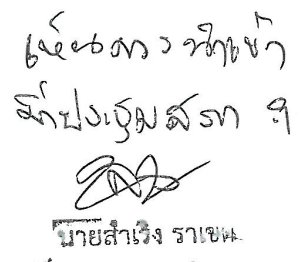 เห็นควรนำเข้า
ที่ประชุมสภา ฯ
นายสำเริง ราเขต